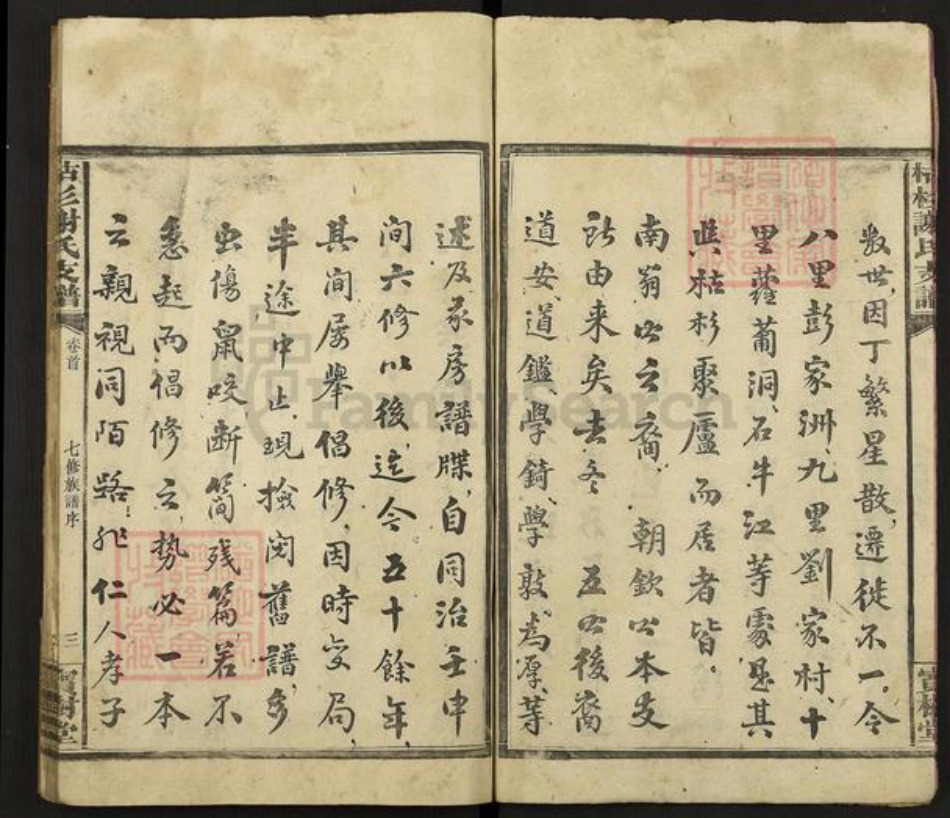 數世,因丁繁星散,遷徙不一。今
八里彭家洲、九里劉家村、十
里蘿蔔洞、石牛江等處,思其
與枯杉聚廬而居者皆。
南翁公之裔 朝欽公本支
所由来矣。去冬 五公後裔
道安、道鑑、學錡、學敦、為厚、等
述及承房譜牒,自同治壬申
间六修以後,迄今五十餘年,
其间屡舉倡修,因時变局,
半途中止,現檢閲舊譜多
虫傷鼠咬,断简残篇,若不
急起而倡修之,勢必一本
之親視同陌路!非仁人孝子
枯杉謝氏支譜
卷首
七修族譜序
三
寳樹堂